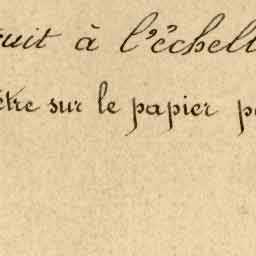 uit à l'échell
ètre sur le papier p